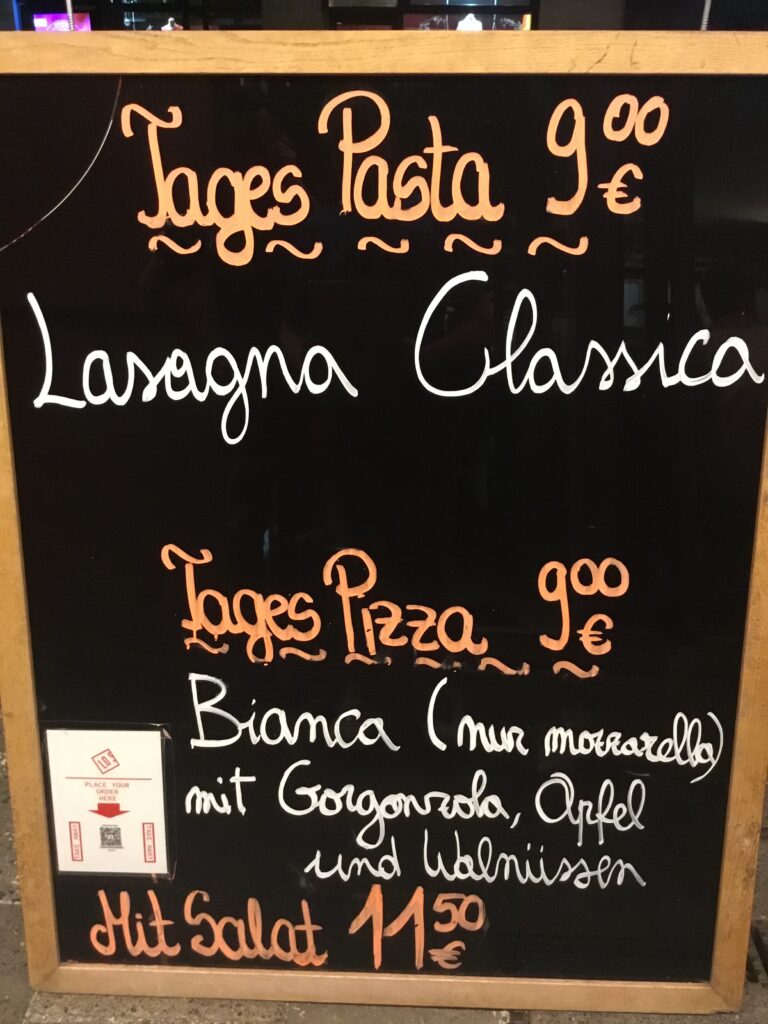 Tages Pasta 9,00 €
Lasagna Classica
Tages Pizza 9,00 €
Bianca (nur mozzarella)
mit Gorgonzola, Apfel
und Walnüssen
PLACE YOUR
ORDER
HERE
TAKE AWAY
TAKE AWAY
Mit Salat 11,50 €